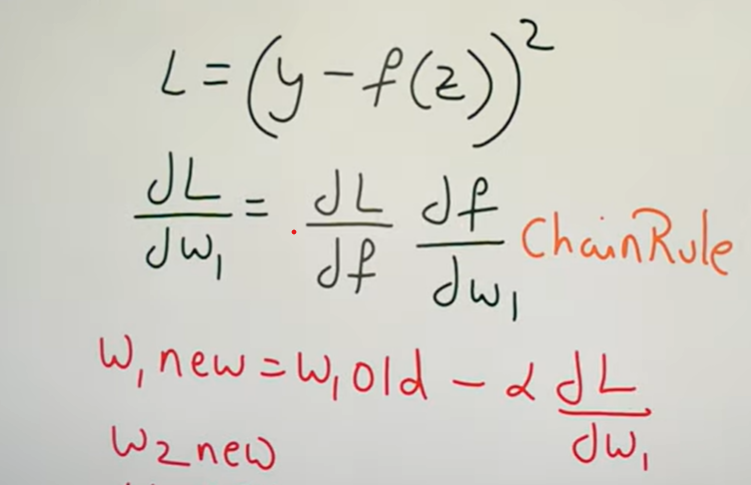 L = (y - f(z))²
dL/dw₁ = dL/df df/dw₁ Chain Rule
w₁ new = w₁ old - α dL/dw₁
w₂ new